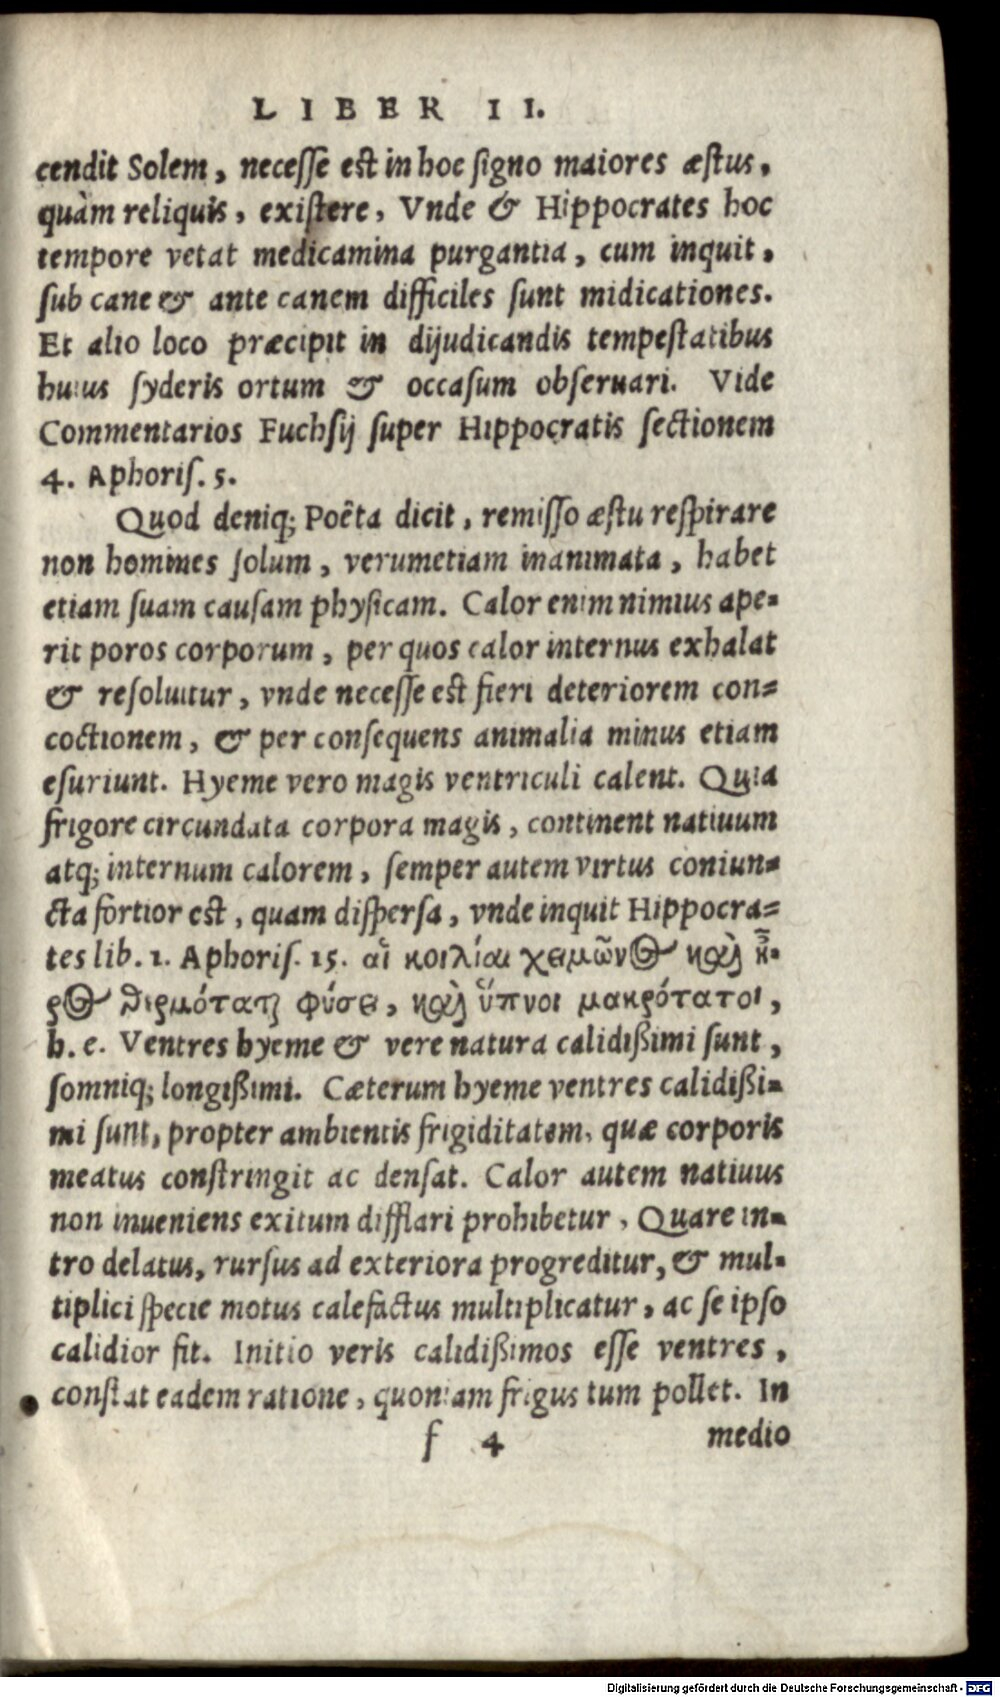 LIBER II.
cendit Solem, necesse est in hoc signo maiores æstus,
quàm reliquis, existere, Vnde & Hippocrates hoc
tempore vetat medicamina purgantia, cum inquit,
sub cane & ante canem difficiles sunt midicationes.
Et alio loco præcipit in dijudicandis tempestatibus
huius syderis ortum & occasum obseruari. Vide
Commentarios Fuchsij super Hippocratis sectionem
4. Aphoris. 5.
Quod deniq; Poêta dicit, remisso æstu respirare
non homines solum, verumetiam inanimata, habet
etiam suam causam physicam. Calor enim nimius ape-
rit poros corporum, per quos calor internus exhalat
& resoluitur, vnde necesse est fieri deteriorem con-
coctionem, & per consequens animalia minus etiam
esuriunt. Hyeme vero magis ventriculi calent. Quia
frigore circundata corpora magis, continent natiuum
atq; internum calorem, semper autem virtus coniun-
cta fortior est, quam dispersa, vnde inquit Hippocra-
tes lib. 1. Aphoris. 15. αἱ κοιλίαι χειμῶνος καὶ ἦ-
ρος θερμόταται φύσει, καὶ ὕπνοι μακρότατοι,
h. e. Ventres hyeme & vere natura calidißimi sunt,
somniq; longißimi. Cæterum hyeme ventres calidißi-
mi sunt, propter ambientis frigiditatem, quæ corporis
meatus constringit ac densat. Calor autem natiuus
non inueniens exitum difflari prohibetur, Quare in-
tro delatus, rursus ad exteriora progreditur, & mul-
tiplici specie motus calefactus multiplicatur, ac se ipso
calidior fit. Initio veris calidißimos esse ventres,
constat eadem ratione, quoniam frigus tum pollet. In
f 4 medio
Digitalisierung gefördert durch die Deutsche Forschungsgemeinschaft - DFG